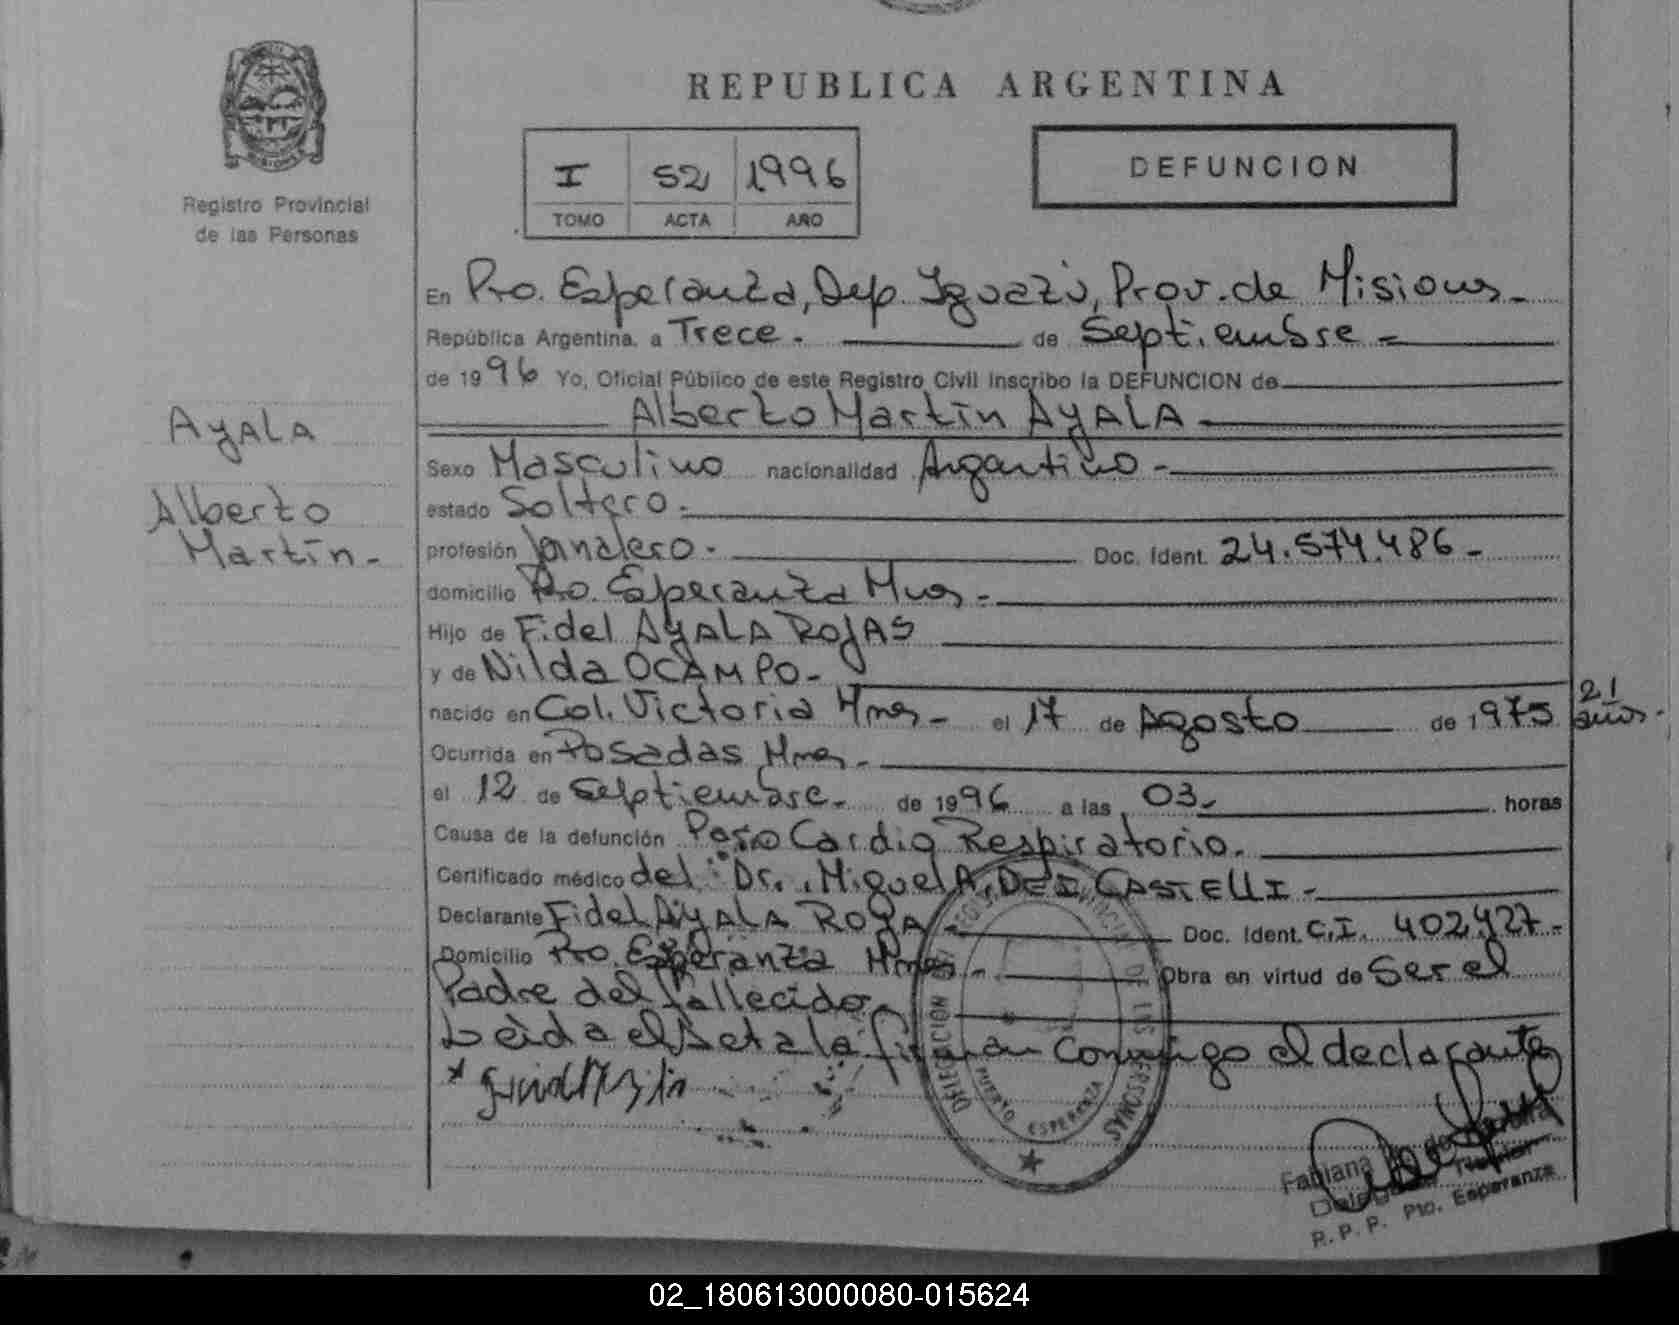 REPUBLICA ARGENTINA
Registro Provincial
de las Personas
I 52 1996
TOMO ACTA AÑO
DEFUNCION
En Pto. Esperanza, Dep. Iguazú, Prov. de Misiones-
República Argentina, a Trece - de Septiembre -
de 1996 Yo, Oficial Público de este Registro Civil inscribo la DEFUNCION de
Alberto Martín AYALA
AyALA
Alberto
Martín-
Sexo Masculino nacionalidad Argentino-
estado Soltero-
profesión Jornalero- Doc. Ident. 24.574.486-
domicilio Pto. Esperanza Mnes-
Hijo de Fidel AyALA ROJAS
y de Nilda OCAMPO-
nacido en Col. Victoria Mnes- el 17 de Agosto de 1975 21 años-
Ocurrida en Posadas Mnes-
el 12 de Septiembre- de 1996 a las 03- horas
Causa de la defunción Paro Cardio Respiratorio.
Certificado médico del Dr. Miguel A. DEI CASTELLI-
Declarante Fidel AyALA ROJA- Doc. Ident. C.I. 402.427-
Domicilio Pto. Esperanza Mnes- Obra en virtud de Ser el
Padre del fallecido-
Leída el Acta la firman conmigo el declarante
OFICECION REGISTRO PROVINCIAL DE LAS PERSONAS
PUERTO ESPERANZA
Fabiana de
R. P. P. Pto. Esperanza
02_180613000080-015624